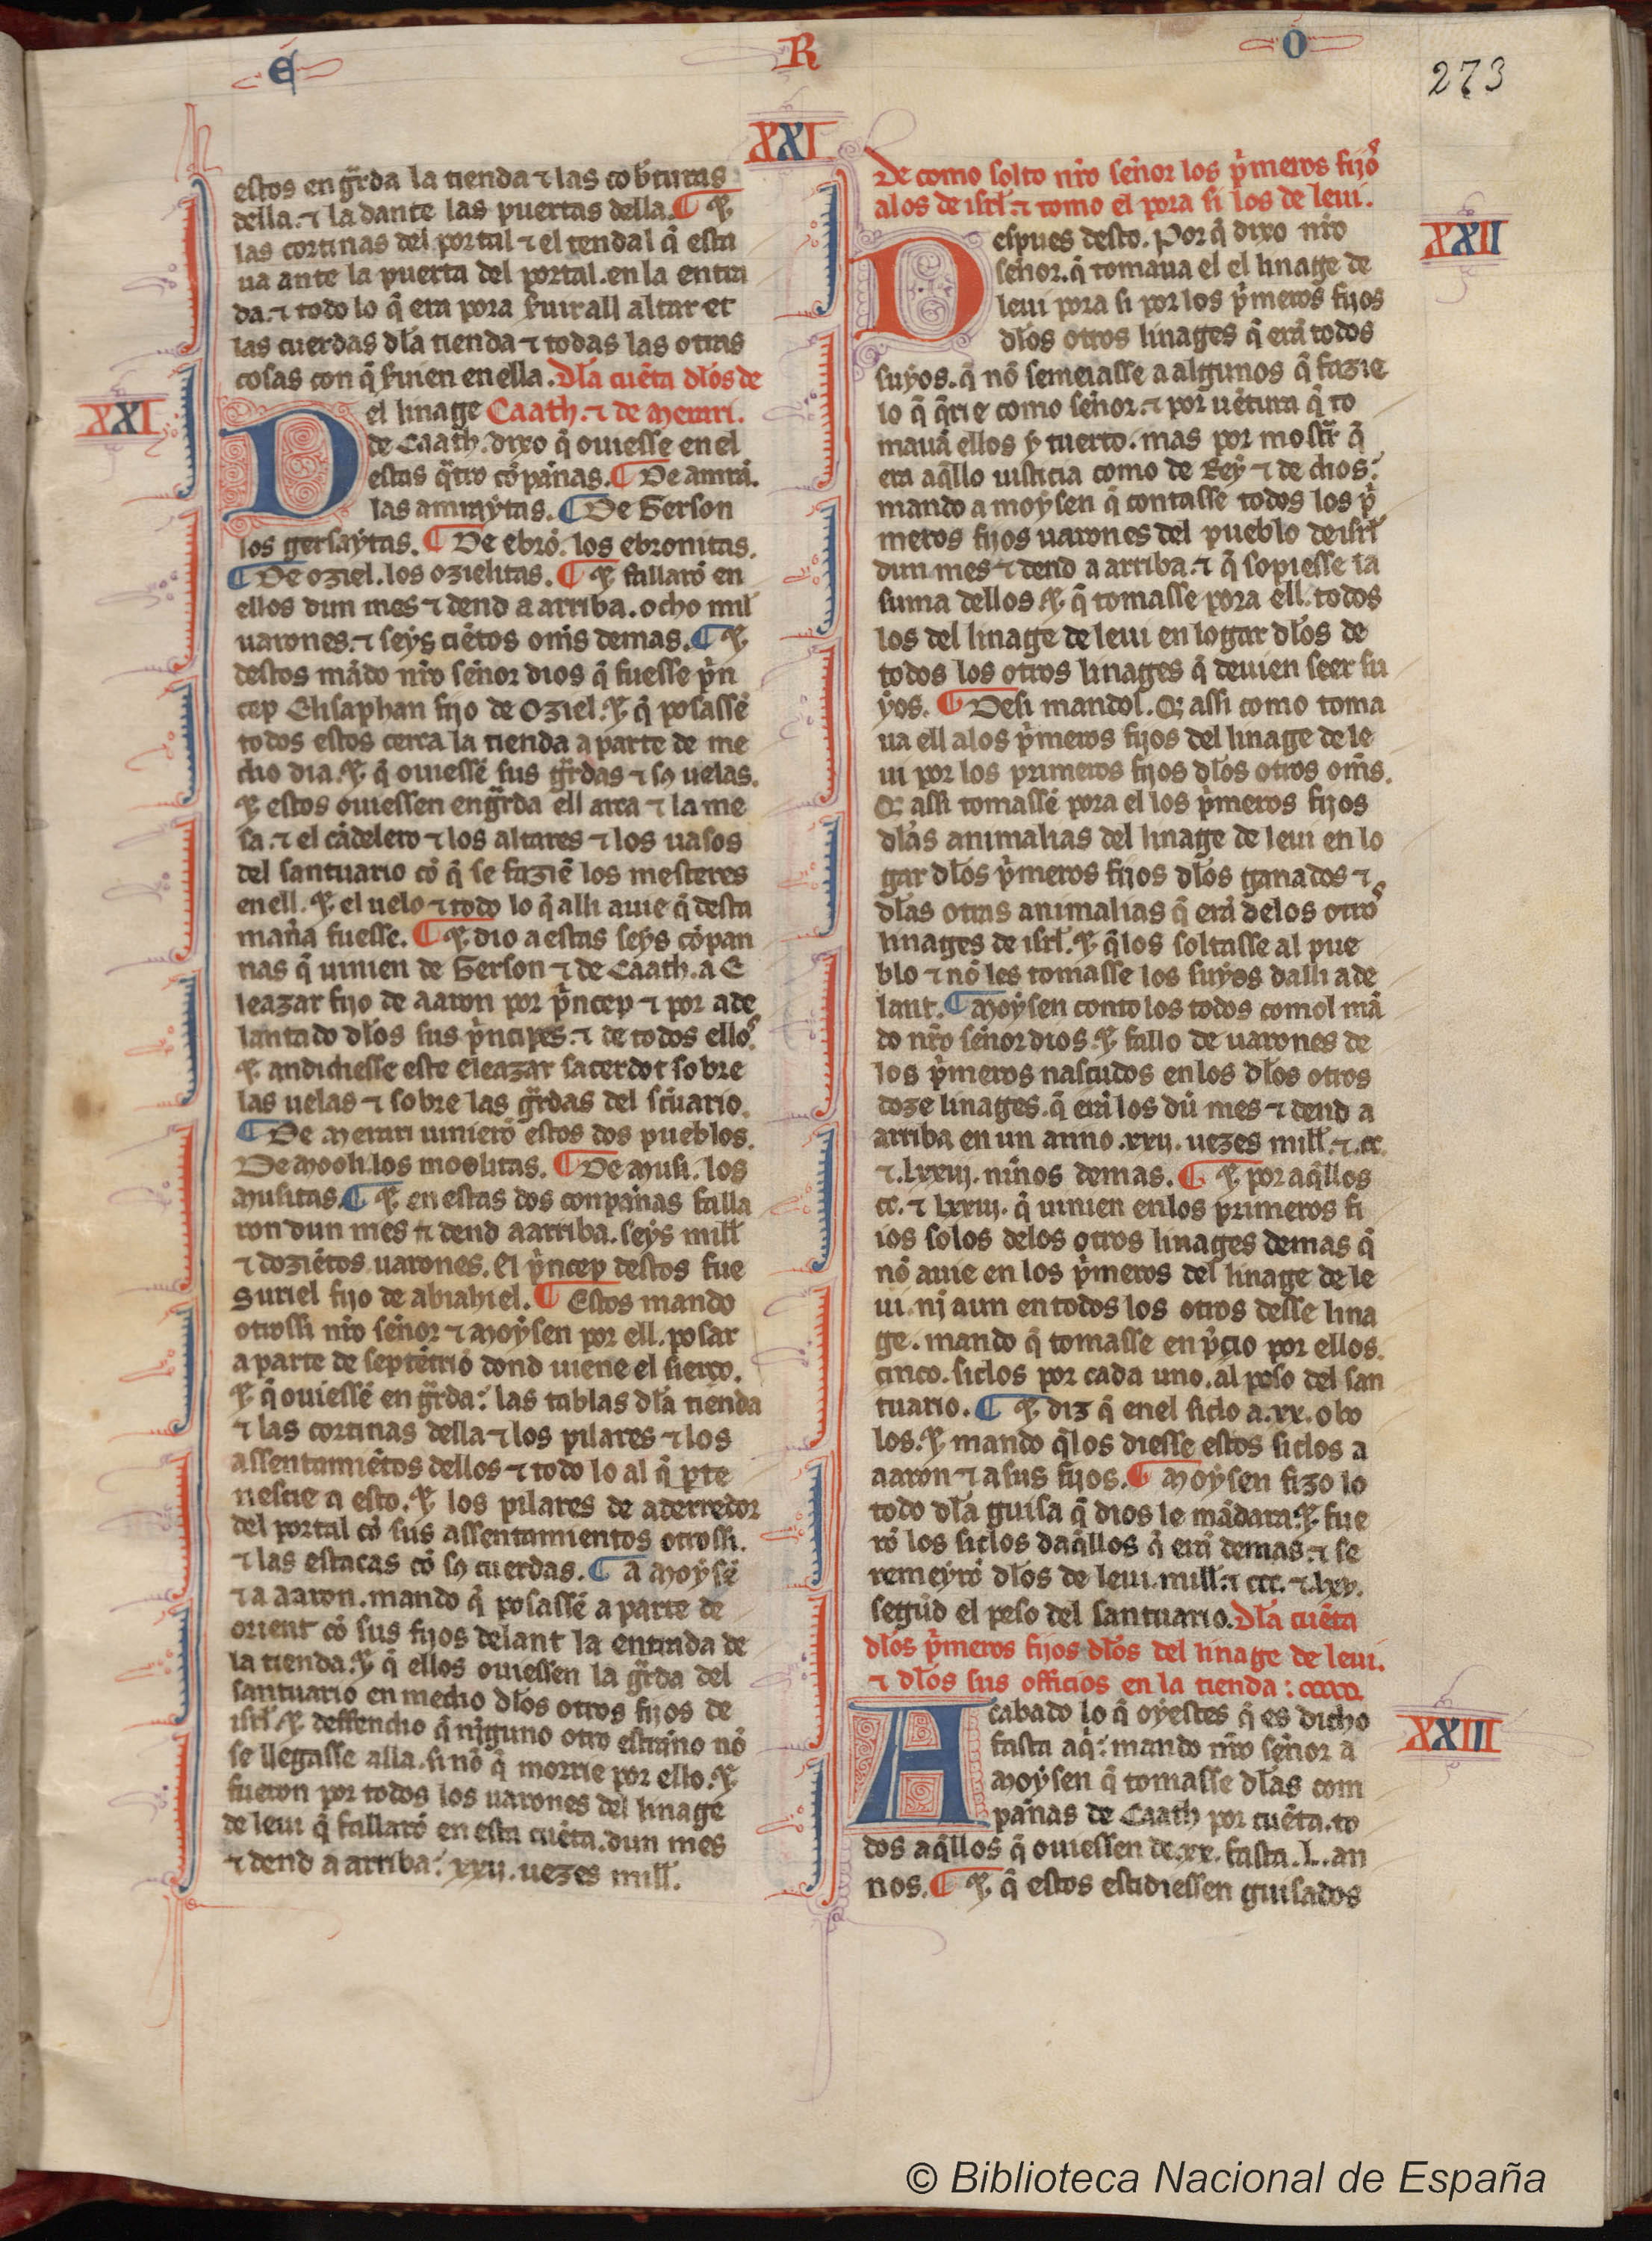 E
R
O
273
XXI
estos en gͣrda la tienda ⁊ las cob̃turas
della. ⁊ la dante las puertas della. ¶ ⁊
las cortinas del portal ⁊ el tendal q̃ esta
ua ante la puerta del portal. en la entra
da. ⁊ todo lo q̃ era pora s̃uir all altar et
las cuerdas dl̃a tienda ⁊ todas las otras
cosas con q̃ s̃uien en ella. Dl̃a cuẽta dl̃os de
XXI
el linage Caath. ⁊ de Merari.
De Caath. dixo q̃ ouiesse en el
estas qͣtro cõpañas. ¶ De amrã.
las amraytas. ¶ De Gerson
los gersaytas. ¶ De ebrõ. los ebronitas.
¶ De oziel. los ozielitas. ¶ ⁊ fallarõ en
ellos dun mes ⁊ dend a arriba. ocho mil
uarones. ⁊ seys ciẽtos om̃s demas. ¶ ⁊
destos mãdo nr̃o señor dios q̃ fuesse pⁱn
cep Elisaphan fijo de Oziel. ⁊ q̃ posassẽ
todos estos cerca la tienda a parte de me
dio dia. ⁊ q̃ ouiessẽ sus gͣrdas ⁊ sꝯ uelas.
⁊ estos ouiessen en gͣrda ell arca ⁊ la me
sa. ⁊ el cãdelero ⁊ los altares ⁊ los uasos
del santuario cõ q̃ se faziẽ los mesteres
en ell. ⁊ el uelo ⁊ todo lo q̃ alli auie q̃ desta
maña fuesse. ¶ ⁊ dio a estas seys cõpan
nas q̃ uinien de Gerson ⁊ de Caath. a E
leazar fijo de aaron por pⁱncep ⁊ por ade
lantado dl̃os sus pⁱncipes. ⁊ de todos ellos.
⁊ andidiesse este eleazar sacerdot sobre
las uelas ⁊ sobre las gͣrdas del sc̃uario.
¶ De Merari uinierõ estos dos pueblos.
De Mooli. los moolitas. ¶ De Musi. los
Musitas. ¶ ⁊ en estas dos conpañas falla
ron dun mes ⁊ dend a arriba. seys mill
⁊ doziẽtos uarones. El pⁱncep destos fue
Suriel fijo de abiahiel. ¶ Estos mando
otrossi nr̃o señor ⁊ Moysen por ell. posar
a parte de septẽtrio dond uiene el cierço.
⁊ q̃ ouiessẽ en gͣrda: las tablas dl̃a tienda
⁊ las cortinas della ⁊ los pilares ⁊ los
assentamiẽtos dellos ⁊ todo lo al q̃ ꝑte
nesçie a esto. ⁊ los pilares de aderredor
del portal cõ sus assentamientos otrossi.
⁊ las estacas cõ sꝯ cuerdas. ¶ A Moysẽ
⁊ a aaron. mando q̃ posassẽ a parte de
orient cõ sus fijos delant la entrada de
la tienda. ⁊ q̃ ellos ouiessen la gͣrda del
santuario en medio dl̃os otros fijos de
isrl̃. ⁊ deffendio q̃ niguno otro estraño nõ
se llegasse alla. si nõ q̃ morrie por ello. ⁊
fueron por todos los uarones del linage
de leui q̃ fallarõ en esta cuẽta. dun mes
⁊ dend a arriba: xxij. uezes mill.
De como solto nr̃o señor los pⁱmeros fijos
a los de isrl̃. ⁊ tomo el pora si los de leui.
XXII
Despues desto. Por q̃ dixo nr̃o
señor. q̃ tomaua el el linage de
leui pora si por los pⁱmeros fijos
dl̃os otros linages q̃ erã todos
suyos. q̃ nõ semeiasse a algunos q̃ fazie
lo q̃ q̃rie como señor. ⁊ por uẽtura q̃ to
mauã ellos y tuerto. mas por mostͣr q̃
era aq̃llo iusticia como de Rey ⁊ de dios:
mando a moysen q̃ contasse todos los pⁱ
meros fijos uarones del pueblo de isrl̃
dun mes ⁊ dend a arriba. ⁊ q̃ sopiesse la
suma dellos. ⁊ q̃ tomasse pora ell. todos
los del linage de leui en logar dl̃os de
todos los otros linages q̃ deuien seer su
yos. ¶ Desi mandol. Q̃ assi como toma
ua ell a los pⁱmeros fijos del linage de le
ui por los primeros fijos dl̃os otros om̃s.
Q̃ assi tomassẽ pora el los pⁱmeros fijos
dl̃as animalias del linage de leui en lo
gar dl̃os pⁱmeros fijos dl̃os ganados ⁊
dl̃as otras animalias q̃ erã de los otros
linages de isrl̃. ⁊ q̃ los soltasse al pue
blo ⁊ nõ les tomasse los suyos dalli ade
lant. ¶ Moysen conto los todos comol mã
do nr̃o señor dios. ⁊ fallo de uarones de
los pⁱmeros nascudos en los dl̃os otros
doze linages. q̃ erã los dũ mes ⁊ dend a
arriba en un anno .xxij. uezes mill. ⁊ .cc.
⁊ .lxxiij. niños demas. ¶ ⁊ por aq̃llos
cc. ⁊ lxxiij. q̃ uinien en los primeros fi
ios solos de los otros linages demas q̃
nõ auie en los pⁱmeros del linage de le
ui. nj aun en todos los otros desse lina
ge. mando q̃ tomasse en p̃cio por ellos.
cinco. siclos por cada uno. al peso del san
tuario. ¶ ⁊ diz q̃ en el siclo a .xx. obo
los. ⁊ mando q̃ los diesse estos siclos a
aaron ⁊ a sus fijos. ¶ Moysen fizo lo
todo dl̃a guisa q̃ dios le mãdara. ⁊ fue
rõ los siclos daq̃llos q̃ erã demas. ⁊ se
remeyrõ dl̃os de leui. mill. ⁊ ccc. ⁊ .lxv.
segũd el peso del santuario. Dl̃a cuẽta
dl̃os pⁱmeros fijos dl̃os del linage de leui.
⁊ dl̃os sus officios en la tienda:
XXIII
Acabado lo q̃ oyestes q̃ es dicho
fasta aq̃: mando nr̃o señor a
Moysen q̃ tomasse dl̃as com
pañas de Caath por cuẽta. to
dos aq̃llos q̃ ouiessen de .xx. fasta .L. an
nos. ¶ ⁊ q̃ estos estidiessen guisados
© Biblioteca Nacional de España